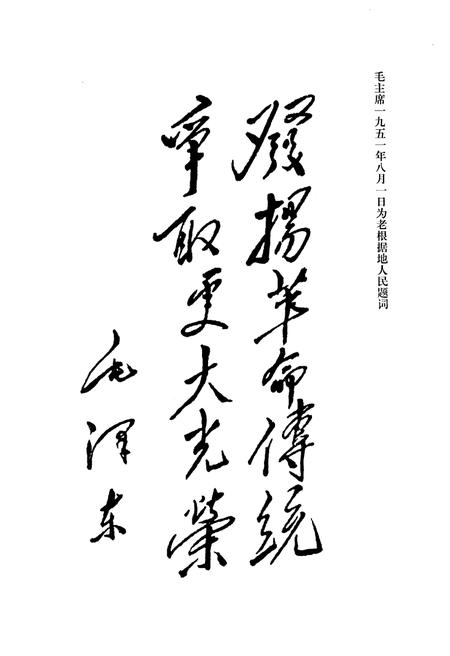 毛主席一九五一年八月一日为老根据地人民题词
發揚革命傳統
爭取更大光榮
毛澤东